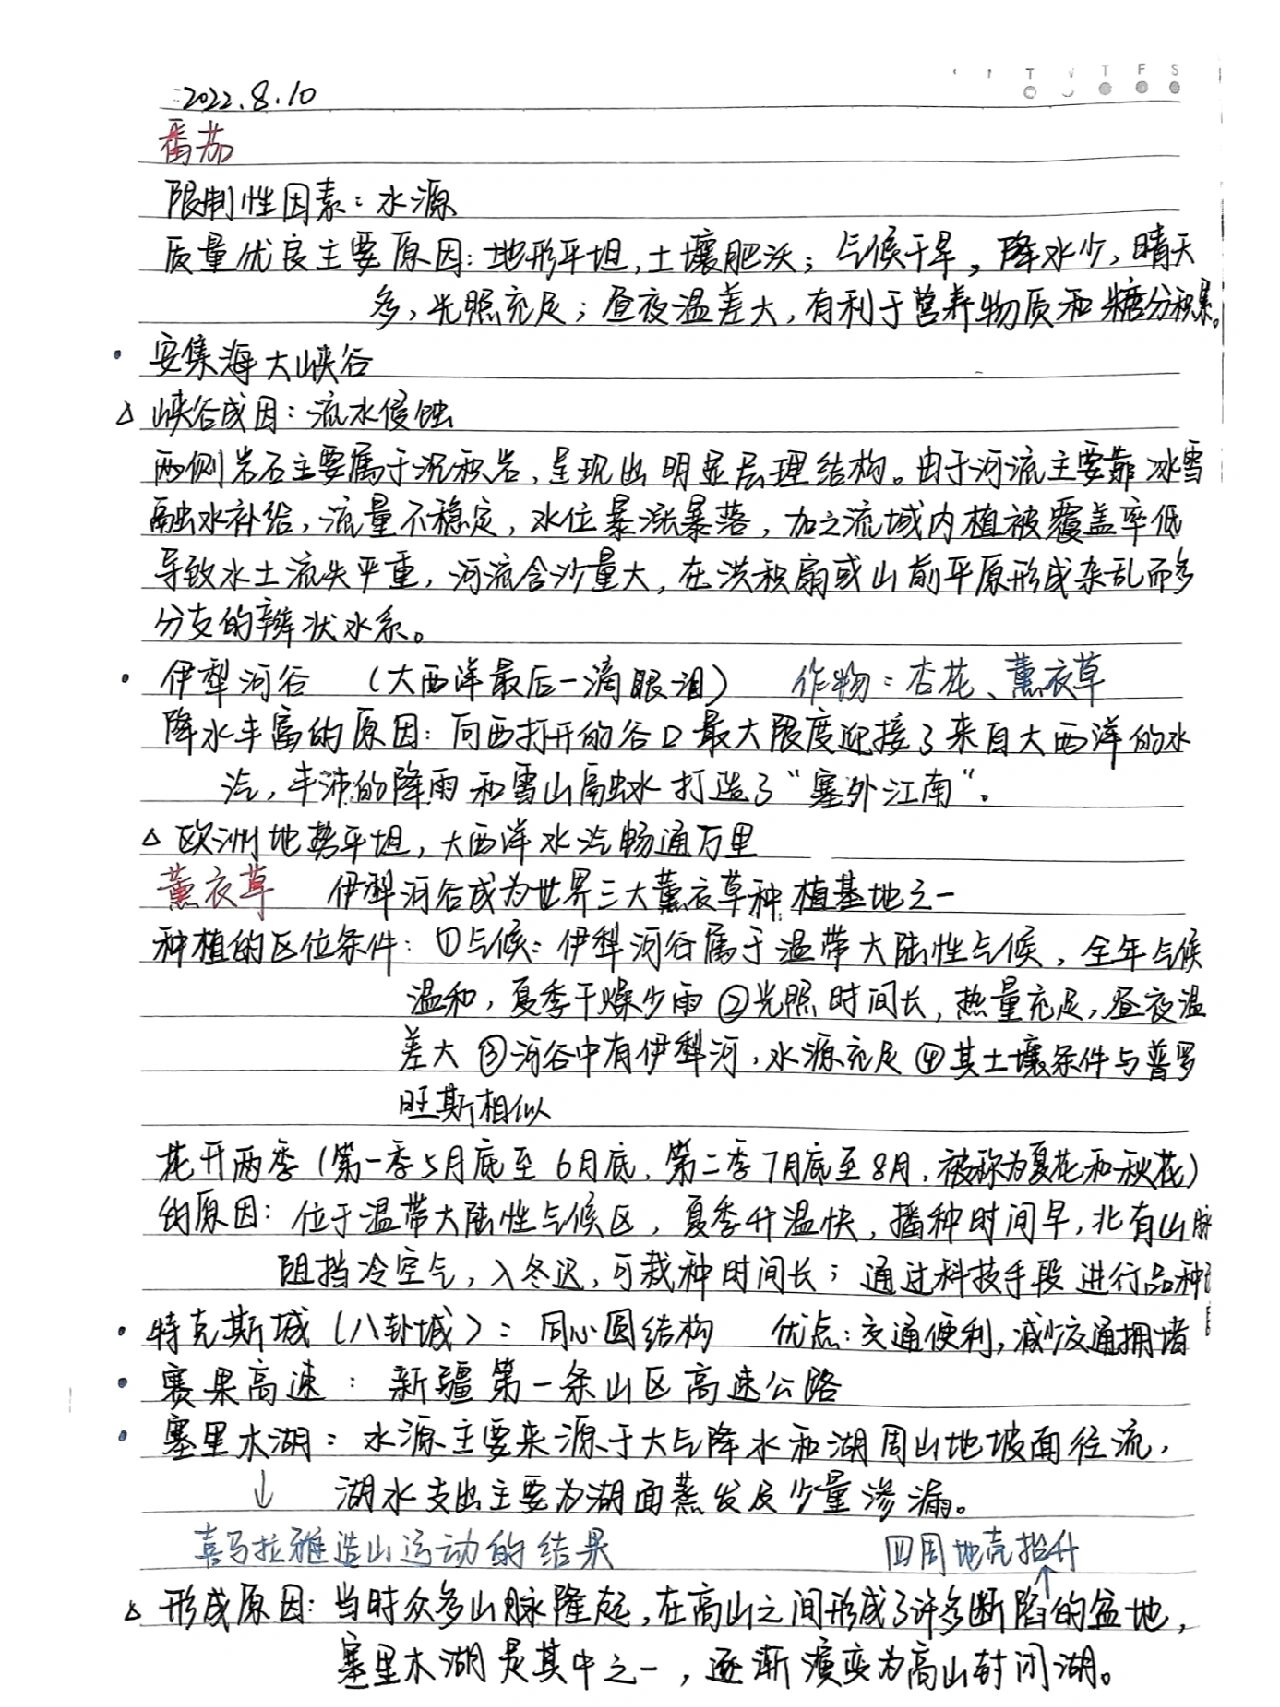 T T F S
2022.8.10
番茄
限制性因素：水源
质量优良主要原因：地形平坦，土壤肥沃；气候干旱，降水少，晴天
多，光照充足；昼夜温差大，有利于营养物质和糖分积累。
· 安集海大峡谷
△ 峡谷成因：流水侵蚀
两侧岩石主要属于沉积岩，呈现出明显层理结构。由于河流主要靠冰雪
融水补给，流量不稳定，水位暴涨暴落，加之流域内植被覆盖率低
导致水土流失严重，河流含沙量大，在洪积扇或山前平原形成杂乱而多
分支的辫状水系。
· 伊犁河谷（大西洋最后一滴眼泪） 作物：杏花、薰衣草
降水丰富的原因：向西打开的谷口最大限度迎接了来自大西洋的水
汽，丰沛的降雨和雪山融水打造了“塞外江南”.
△ 欧洲地势平坦，大西洋水汽畅通万里
薰衣草 伊犁河谷成为世界三大薰衣草种植基地之一
种植的区位条件：①气候：伊犁河谷属于温带大陆性气候，全年气候
温和，夏季干燥少雨②光照时间长，热量充足，昼夜温
差大③河谷中有伊犁河，水源充足④其土壤条件与普罗
旺斯相似
花开两季（第一季5月底至6月底，第二季7月底至8月，被称为夏花和秋花）
的原因：位于温带大陆性气候区，夏季升温快，播种时间早，北有山脉
阻挡冷空气，入冬迟，可栽种时间长；通过科技手段进行品种
· 特克斯城（八卦城）：同心圆结构 优点：交通便利，减少交通拥堵
· 赛果高速：新疆第一条山区高速公路
· 塞里木湖：水源主要来源于大气降水和湖周山地坡面径流，
↓ 湖水支出主要为湖面蒸发及少量渗漏。
喜马拉雅造山运动的结果 四周地壳抬升
△ 形成原因：当时众多山脉隆起，在高山之间形成了许多断陷的盆地，
塞里木湖是其中之一，逐渐演变为高山封闭湖。